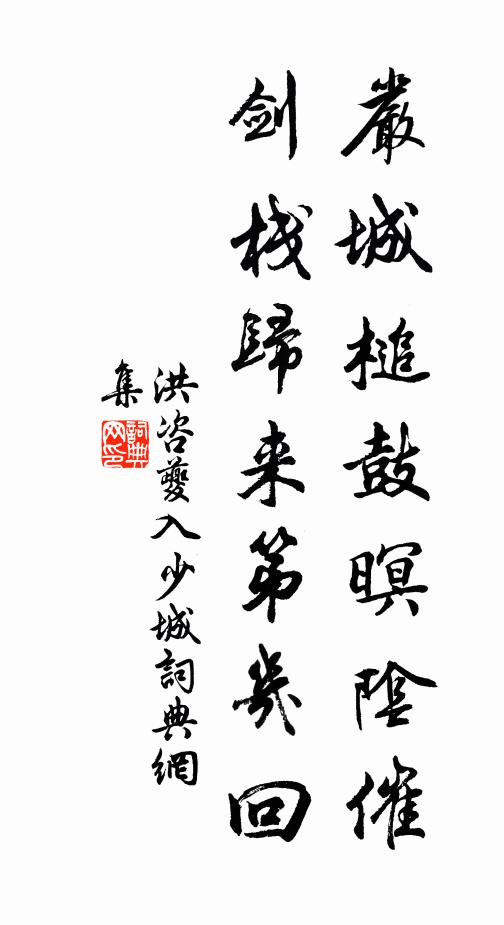 嚴城槌鼓暝陰催
剑栈歸来第幾回
洪咨夔入少城詞典網
集
詞典网印